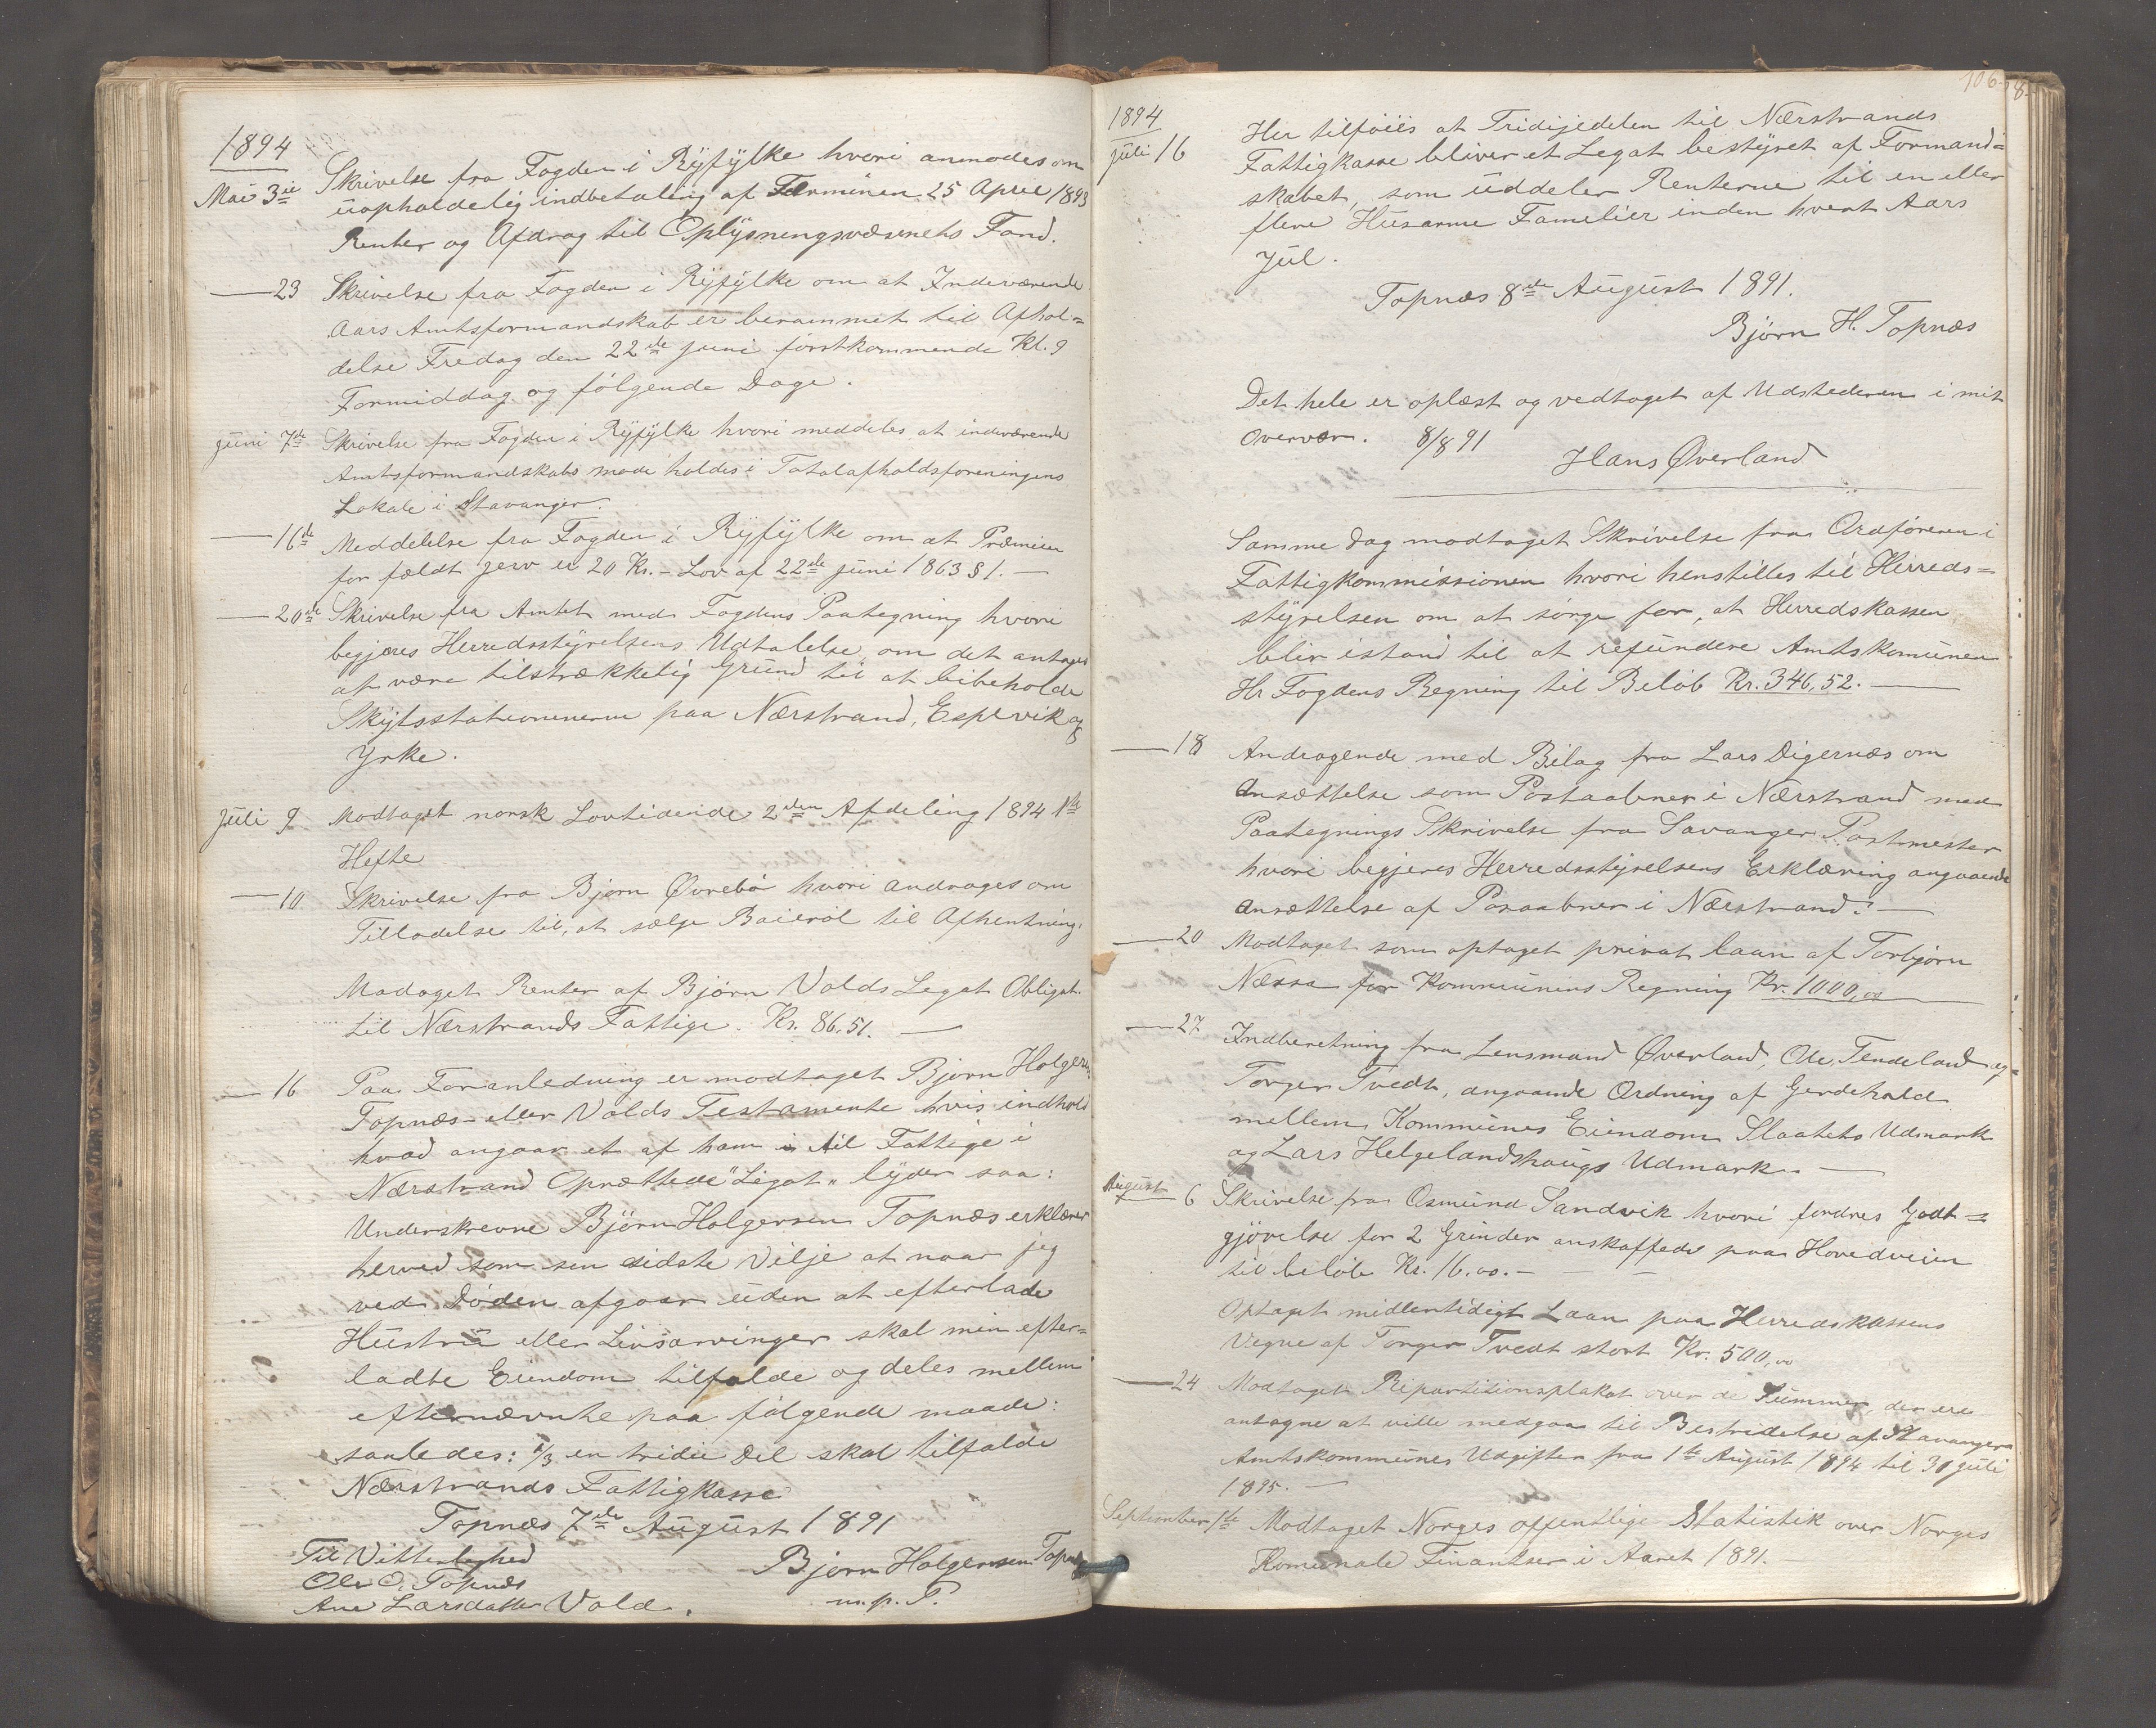 1894
Mai 3ie Skrivelse fra Fogden i Ryfylke hvori anmodes om
uopholdelig indbetaling af Terminen 25 April 1893
Renter og Afdrag til Oplysningsvæsenets Fond.
— 23 Skrivelse fra Fogden i Ryfylke om at Indeværende
Aars Amtsformandskab er berammet til Afhol=
delse Fredag den 22de juni førstkommende Kl. 9
Formiddag og følgende Dage.
juni 7de Skrivelse fra Fogden i Ryfylke hvori meddeles at indeværende
Amtsformandskabs møde holdes i Totalafholdsforeningens
Lokale i Stavanger.
— 16de Meddelelse fra Fogden i Ryfylke om at Præmien
for fældt jerv er 20 Kr. – Lov af 22de juni 1863 § 1. —
— 20de Skrivelse fra Amtet med Fogdens Paategning hvori
begjæres Herredsstyrelsens Udtalelse om det antages
at være tilstrækkelig Grund til at bibeholde
Skydsstationenerne paa Nærstrand, Espevik og
Yrke.
Juli 9 Modtaget norsk Lovtidende 2den Afdeling 1894 1ste
Hefte
— 10 Skrivelse fra Bjørn Øvrebø hvori andrages om
Tilladelse til, at sælge Baierøl til Afhentning.
Modaget Renter af Bjørn Volds Legat Obligat.
til Nærstrands Fattige. Kr. 86,51. —
— 16 Paa Foranledning er modtaget Bjørn Holgers.
Topnæs eller Volds Testamente hvis indhold
hvad angaar et af ham til Fattige i
Nærstrand Oprættede "Legat" lyder saa:
Underskrevne Bjørn Holgersen Topnæs erklærer
herved som sin sidste Vilje at naar jeg
ved Døden afgaar uden at efterlade
Hustru eller Livsarvinger skal min efter=
ladte Eiendom tilfalde og deles mellem
efternævnte paa følgende maade:
saaledes: 1/3 en tridie Del skal tilfalde
Nærstrands Fattigkasse
Topnæs 7de August 1891
Til Vitterlighed
Bjørn Holgersen Topnæs
Ole O. Topnæs
m. p. P.
Ane Larsdatter Vold.
106
1894
juli 16 Her tilføiés at Tridijedelen til Nærstrands
Fattigkasse bliver et Legat bestyret af Formand=
skabet, som uddeler Renterne til en eller
flere Husarme Familier inden hvert Aars
Jul.
Topnæs 8de August 1891.
Bjørn H. Topnæs
Det hele er oplæst og vedtaget af Udstederen i mit
overvær. 8/8 91
Hans Øverland
Samme Dag modtaget Skrivelse fra Ordføreren i
Fattigkommissionen hvori henstilles til Herreds=
styrelsen om at sørge for, at Herredskassen
blir istand til at refundere Amtskomunen
Hr Fogdens Regning til Beløb Kr. 346,52. —
— 18 Andragende med Bilag fra Lars Digernæs om
Ansættelse som Postaabner i Nærstrand med
Paategnings Skrivelse fra Savanger Postmester
hvori begjeres Herredsstyrelsens Erklæring angaaende
Ansættelse af Posaabner i Nærstrand. —
— 20 Modtaget som optaget privat laan af Torbjørn
Næssa for Kommunens Regning Kr. 1000,00
— 27 Indberetning fra Lensmand Øverland, Ole Tendeland og
Torger Tvedt, angaaende Ordning af Gjerdehold
mellem Kommunes Eiendom Slaatets Udmark
og Lars Helgelandshaugs Udmark. —
August 6 Skrivelse fra Osmund Sandvik hvori fordres Godt=
gjørelse for 2 Grinder anskaffede paa Hovedveien
til beløb Kr. 16.00. —
Optaget midlertidigt Laan paa Herredskassens
Vegne af Torger Tvedt stort Kr. 500,00
— 24 Modtaget Ripartitionsplakat over de Summer, der ere
antagne at ville medgaa til Bestridelse af Stavangers
Amtskommunes Udgifter fra 1ste August 1894 til 30 juli
1895. —
September 1ste Modtaget Norges offentlige Statistik over Norges
Komunale Finantser i Aaret 1891.